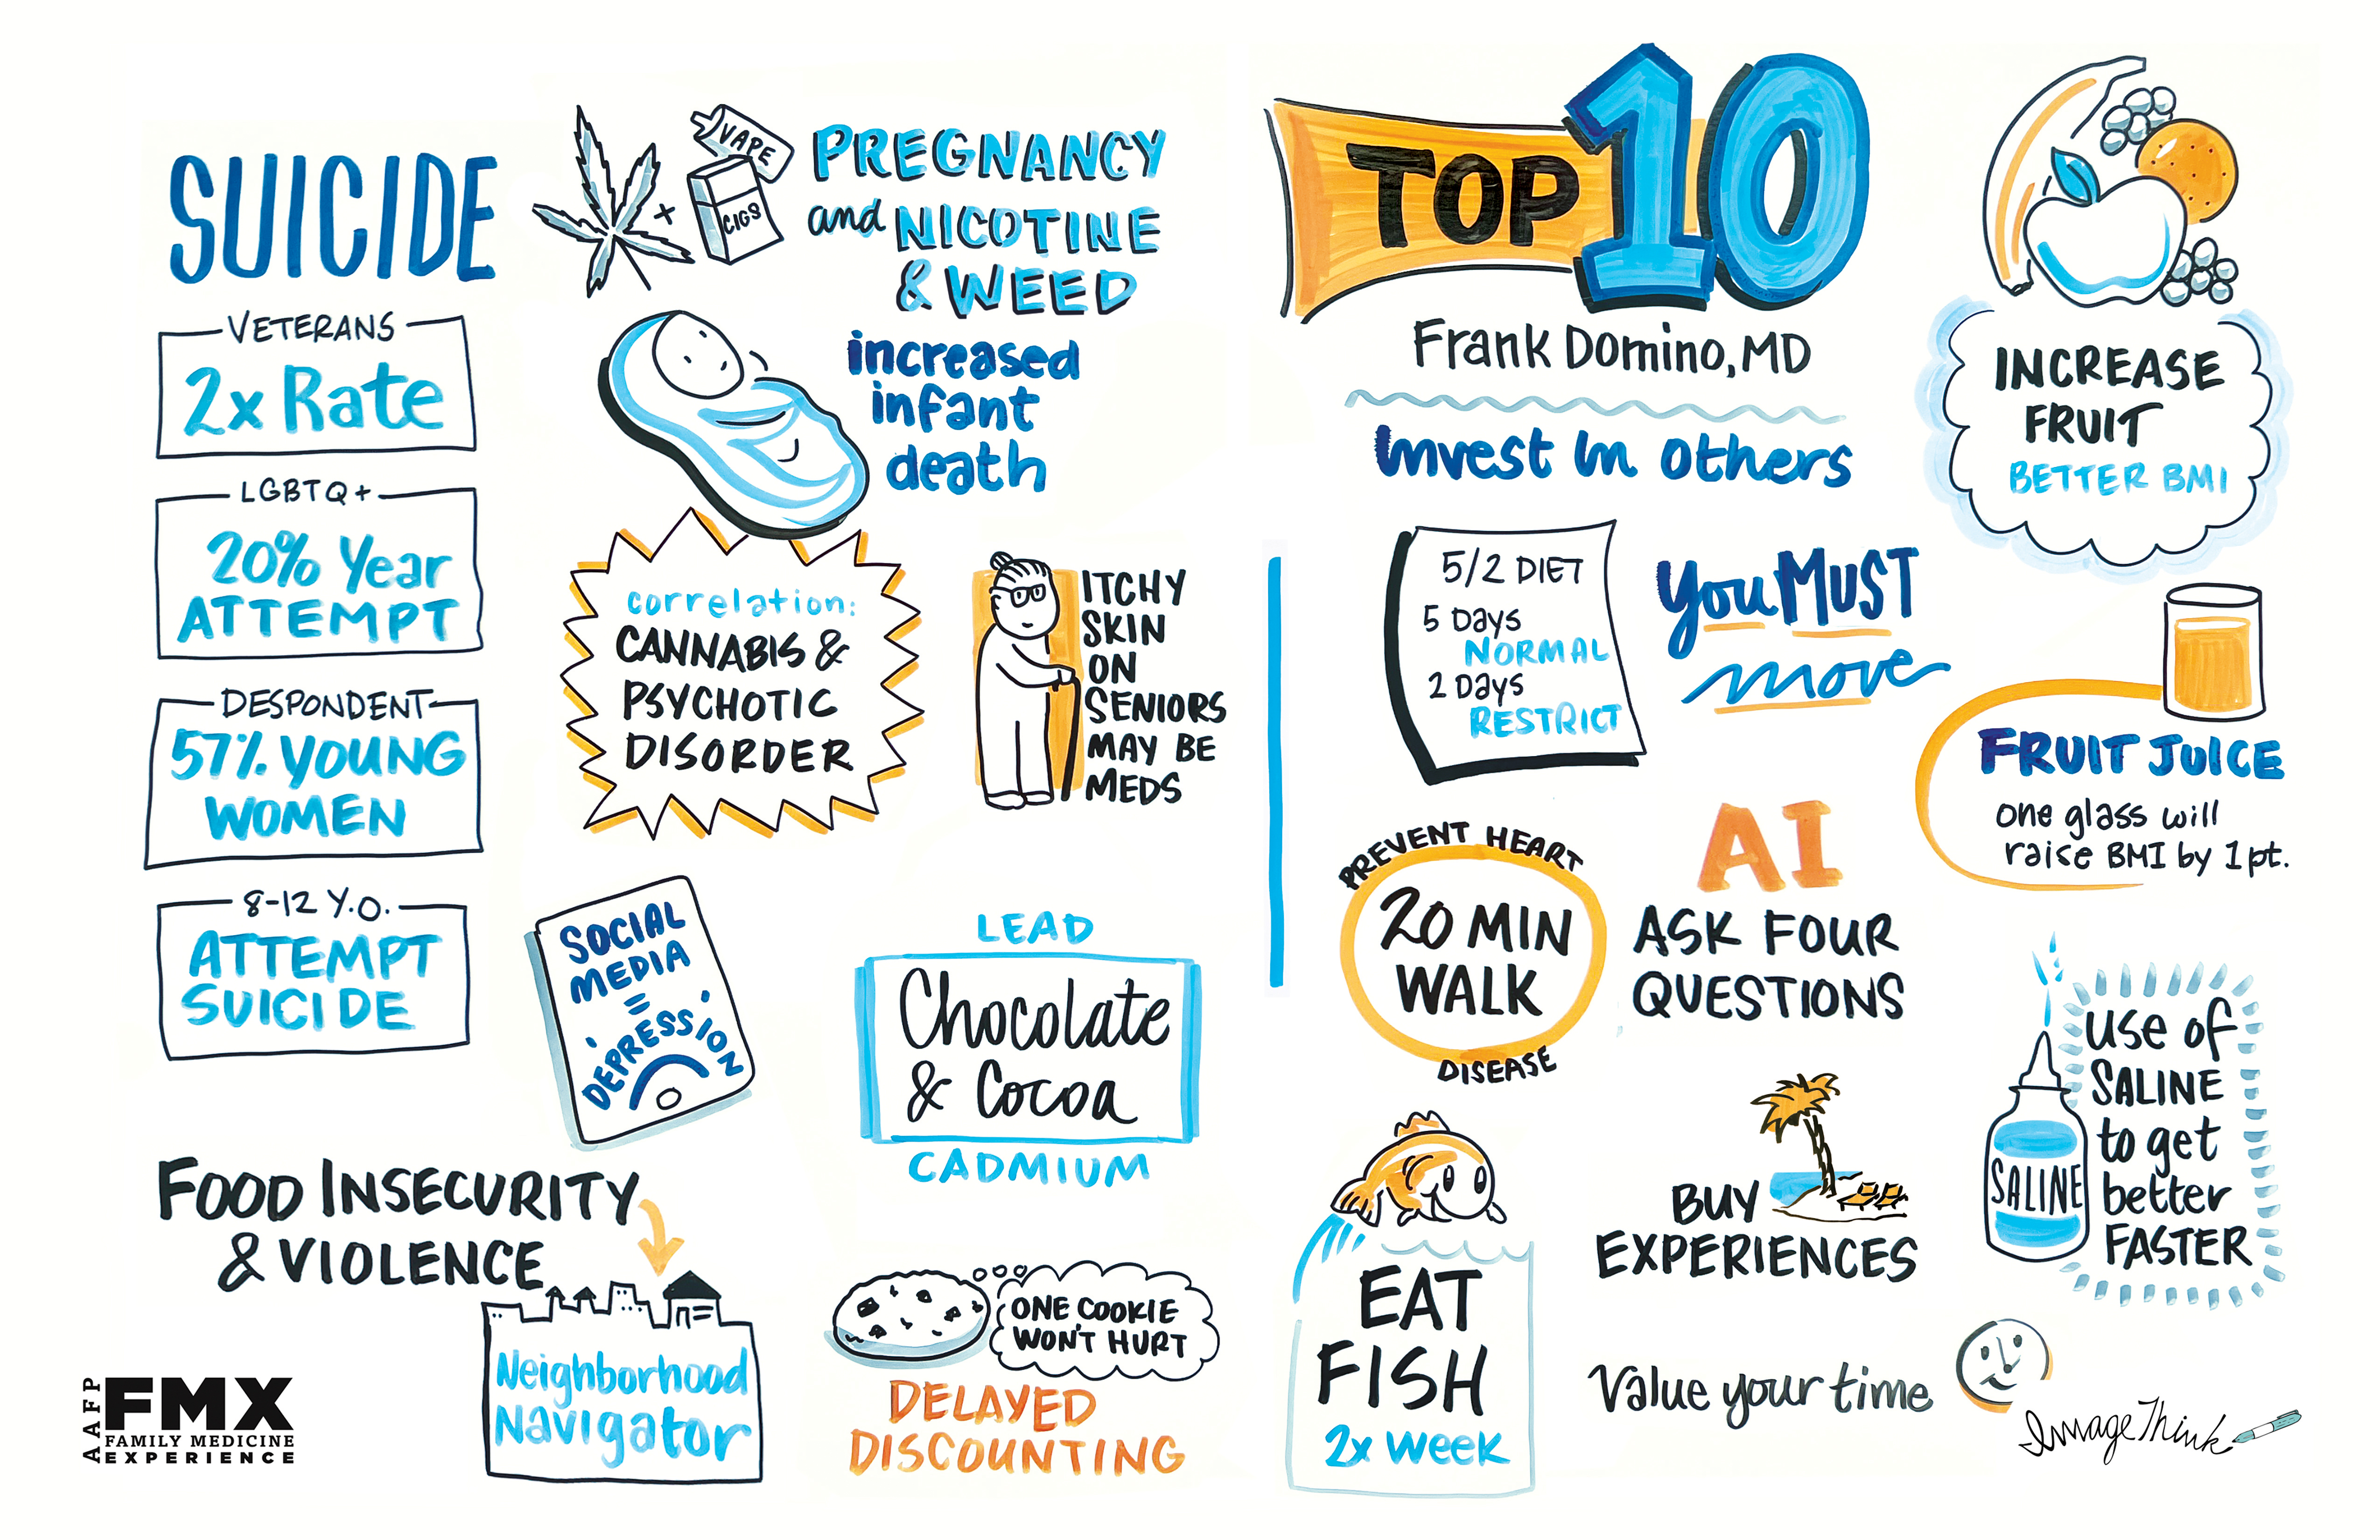 SUICIDE
VETERANS
2x Rate
LGBTQ+
20% Year
ATTEMPT
DESPONDENT
57% YOUNG
WOMEN
8-12 Y.O.
ATTEMPT
SUICIDE
VAPE
CIGS
+
PREGNANCY
and NICOTINE
& WEED
increased
infant
death
correlation:
CANNABIS &
PSYCHOTIC
DISORDER
ITCHY
SKIN
ON
SENIORS
MAY BE
MEDS
SOCIAL
MEDIA
=
DEPRESSION
LEAD
Chocolate
& Cocoa
CADMIUM
FOOD INSECURITY
& VIOLENCE
Neighborhood
Navigator
ONE COOKIE
WON'T HURT
DELAYED
DISCOUNTING
AAFP
FMX
FAMILY MEDICINE
EXPERIENCE
TOP 10
Frank Domino, MD
Invest In others
5/2 DIET
5 Days
NORMAL
2 Days
RESTRICT
You MUST
move
PREVENT HEART
20 MIN
WALK
DISEASE
AI
ASK FOUR
QUESTIONS
EAT
FISH
2x Week
BUY
EXPERIENCES
Value your time
INCREASE
FRUIT
BETTER BMI
FRUIT JUICE
one glass will
raise BMI by 1pt.
SALINE
use of
SALINE
to get
better
FASTER
ImageThink